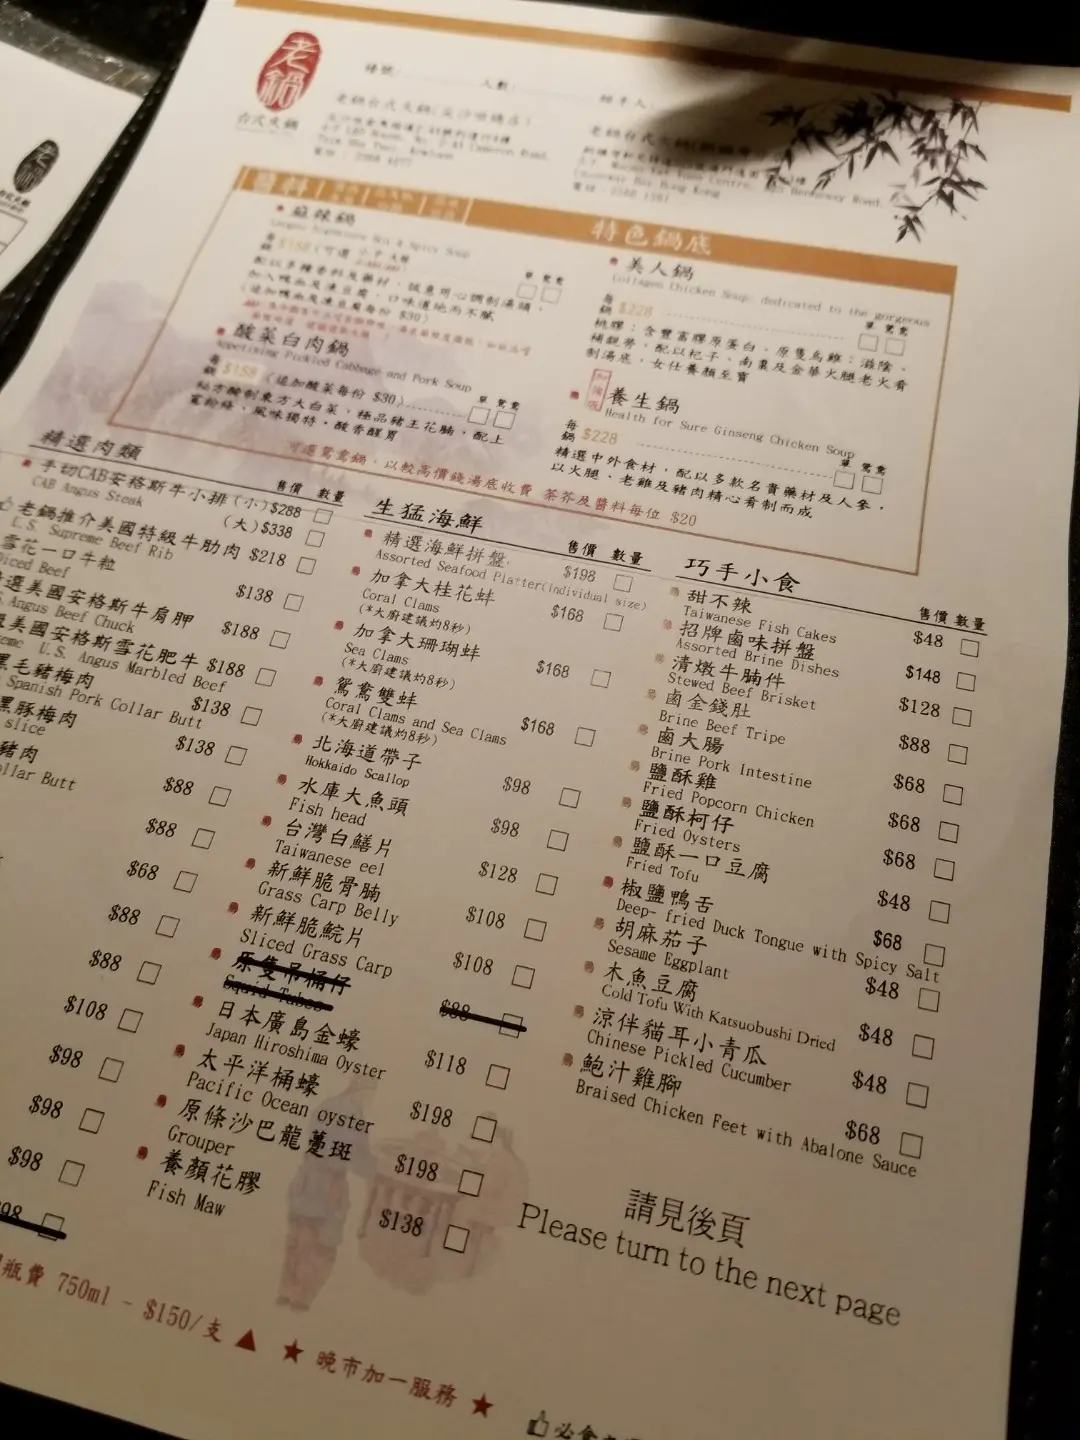 老鍋
台式火鍋
檯號:
人數:
經手人:
老鍋台式火鍋(尖沙咀總店)
醬料
特色鍋底
麻辣鍋
每鍋 $158
加入鴨血及凍豆腐，口味道地而不膩
(追加鴨血及凍豆腐每份 $30)
酸菜白肉鍋
Appetising Pickled Cabbage and Pork Soup
單 鴛鴦
每鍋 $158 (追加酸菜每份 $30)
秘方醃制東方大白菜，極品豬王花腩，配上
寬粉條，風味獨特，酸香醒胃
美人鍋
Collagen Chicken Soup: dedicated to the gorgeous
單 鴛鴦
每鍋 $228
桃膠：含豐富膠原蛋白。原隻烏雞：滋陰。
制湯底，女仕養顏至寶
養生鍋
Health for Sure Ginseng Chicken Soup
單 鴛鴦
每鍋 $228
精選中外食材，配以多款名貴藥材及人參，
以火腿、老雞及豬肉精心肴制而成
可選鴛鴦鍋，以較高價錢湯底收費 茶芥及醬料每位 $20
精選肉類
售價 數量
手切CAB安格斯牛小排 (小)$288
CAB Angus Steak
(大)$338
老鍋推介美國特級牛肋肉 $218
U.S. Supreme Beef Rib
雪花一口牛粒
Diced Beef
$138
選美國安格斯牛肩胛
Angus Beef Chuck
$188
美國安格斯雪花肥牛 $188
U.S. Angus Marbled Beef
黑毛豬梅肉
Spanish Pork Collar Butt
$138
黑豚梅肉
slice
$138
豬肉
ollar Butt
$88
$88
$68
$88
$88
$108
$98
$98
$98
98
生猛海鮮
售價 數量
精選海鮮拼盤
Assorted Seafood Platter(individual size)
$198
加拿大桂花蚌
Coral Clams
(*大廚建議灼8秒)
$168
加拿大珊瑚蚌
Sea Clams
(*大廚建議灼8秒)
$168
鴛鴦雙蚌
Coral Clams and Sea Clams
(*大廚建議灼8秒)
$168
北海道帶子
Hokkaido Scallop
$98
水庫大魚頭
Fish head
$98
台灣白鱔片
Taiwanese eel
$128
新鮮脆骨腩
Grass Carp Belly
$108
新鮮脆鯇片
Sliced Grass Carp
$108
原隻吊桶仔
Squid Tubes
$88
日本廣島金蠔
Japan Hiroshima Oyster
$118
太平洋桶蠔
Pacific Ocean oyster
$198
原條沙巴龍躉斑
Grouper
$198
養顏花膠
Fish Maw
$138
巧手小食
售價 數量
甜不辣
Taiwanese Fish Cakes
$48
招牌鹵味拼盤
Assorted Brine Dishes
$148
清燉牛腩件
Stewed Beef Brisket
$128
鹵金錢肚
Brine Beef Tripe
$88
鹵大腸
Brine Pork Intestine
$68
鹽酥雞
Fried Popcorn Chicken
$68
鹽酥柯仔
Fried Oysters
$68
鹽酥一口豆腐
Fried Tofu
$48
椒鹽鴨舌
Deep- fried Duck Tongue with Spicy Salt
$68
胡麻茄子
Sesame Eggplant
$48
木魚豆腐
Cold Tofu With Katsuobushi Dried
$48
涼伴貓耳小青瓜
Chinese Pickled Cucumber
$48
鮑汁雞腳
Braised Chicken Feet with Abalone Sauce
$68
請見後頁
Please turn to the next page
瓶費 750ml - $150/支 ▲ ★ 晚市加一服務 ★
必食